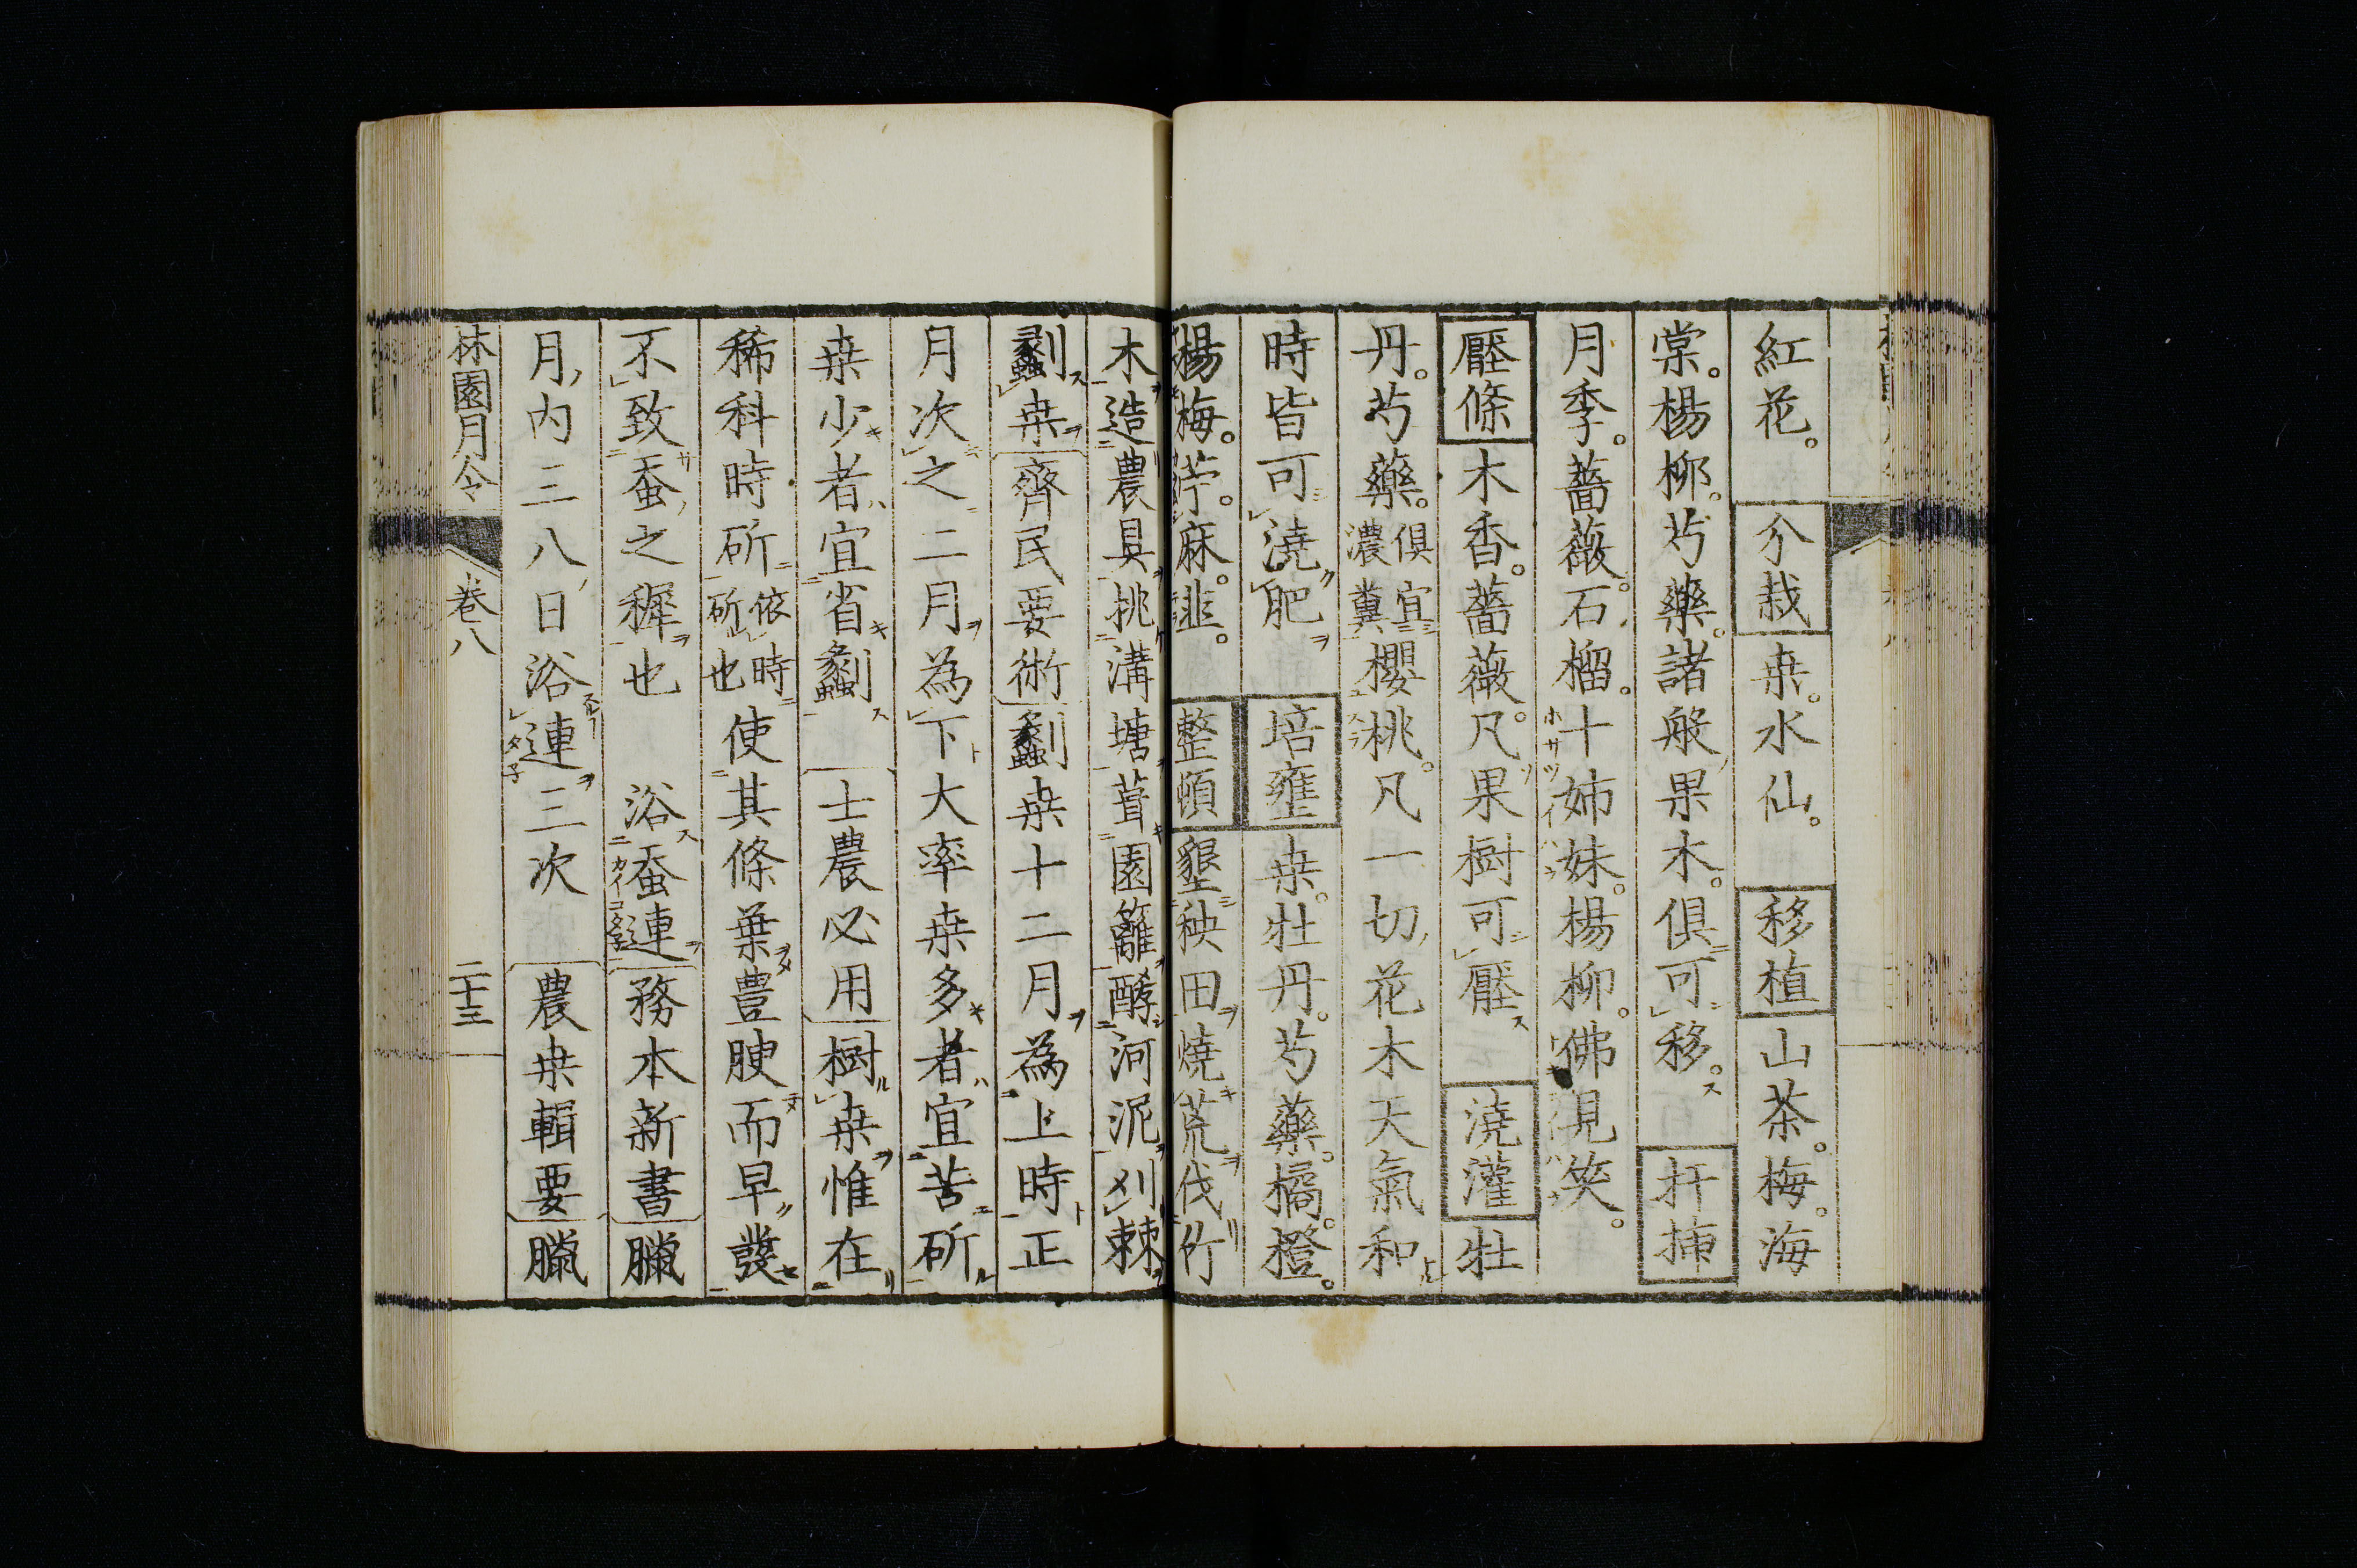 紅花。分栽桒。水仙。移植山茶。梅。海
棠。楊柳。芍藥。諸般果木。俱可移。扦挿
月季。薔薇。石榴。十姉妹。楊柳。佛見笑。
壓條木香。薔薇。凡果樹可壓。澆灌牡
丹。芍藥。俱宜濃糞櫻桃。凡一切花木天氣和
時皆可澆肥。培壅桒。牡丹。芍藥。橘。橙。
楊梅。苧。麻。韮。整頓墾秧田燒荒伐竹
木造農具挑溝塘葺園籬醱河泥刈棘
劙桒齊民要術劙桒十二月為上時正
月次之二月為下大率桒多者宜苦斫
桒少者宜省劙士農必用樹桒惟在
稀科時斫依時斫也使其條葉豊腴而早發
不致蚕之穉也浴蚕連務本新書臘
月内三八日浴連三次農桒輯要臘
林園月令 巻八 二十三